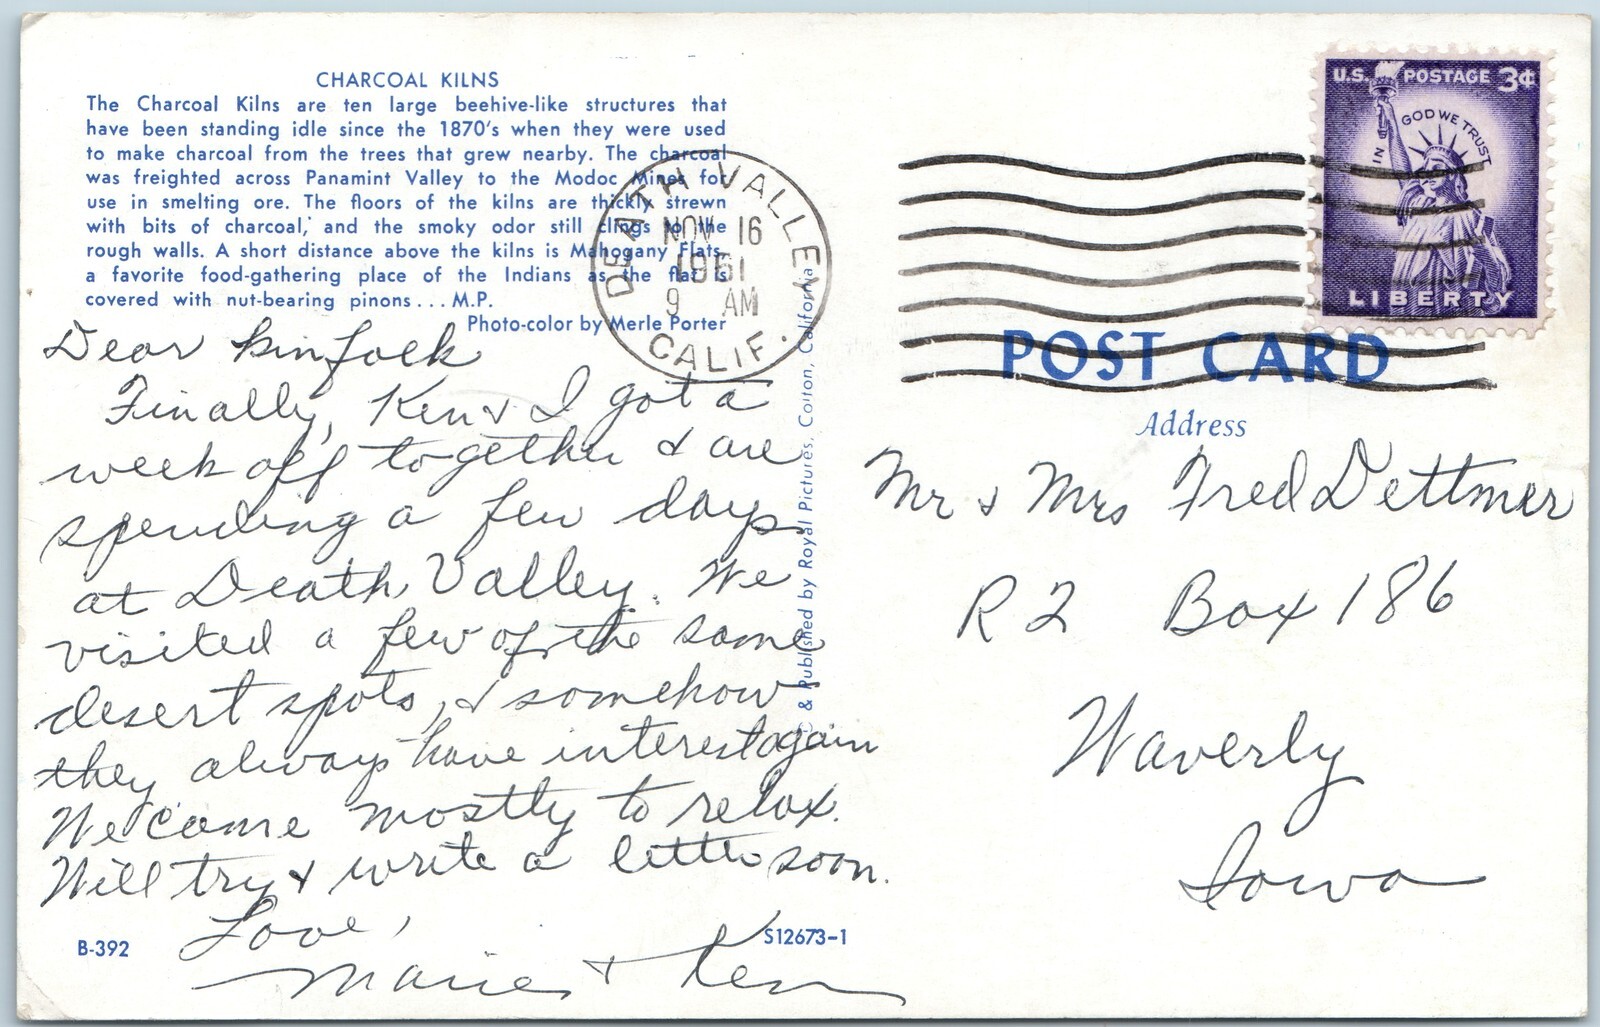 CHARCOAL KILNS
The Charcoal Kilns are ten large beehive-like structures that
have been standing idle since the 1870's when they were used
to make charcoal from the trees that grew nearby. The charcoal
was freighted across Panamint Valley to the Modoc Mines for
use in smelting ore. The floors of the kilns are thickly strewn
with bits of charcoal, and the smoky odor still clings to the
rough walls. A short distance above the kilns is Mahogany Flats,
a favorite food-gathering place of the Indians as the flat is
covered with nut-bearing pinons . . . M.P.
Photo-color by Merle Porter
Dear Kinfolk
Finally, Ken & I got a
week off together & are
spending a few days
at Death Valley. We
visited a few of the same
desert spots, & somehow
they always have interest again
We came mostly to relax.
Will try & write a letter soon.
Love,
Marie & Ken
B-392
S12673-1
& Published by Royal Pictures, Colton, California
DEATH VALLEY
NOV 16
1961
9 AM
CALIF.
U.S. POSTAGE 3¢
IN GOD WE TRUST
LIBERTY
POST CARD
Address
Mr & Mrs Fred Dettmer
R 2 Box 186
Waverly
Iowa